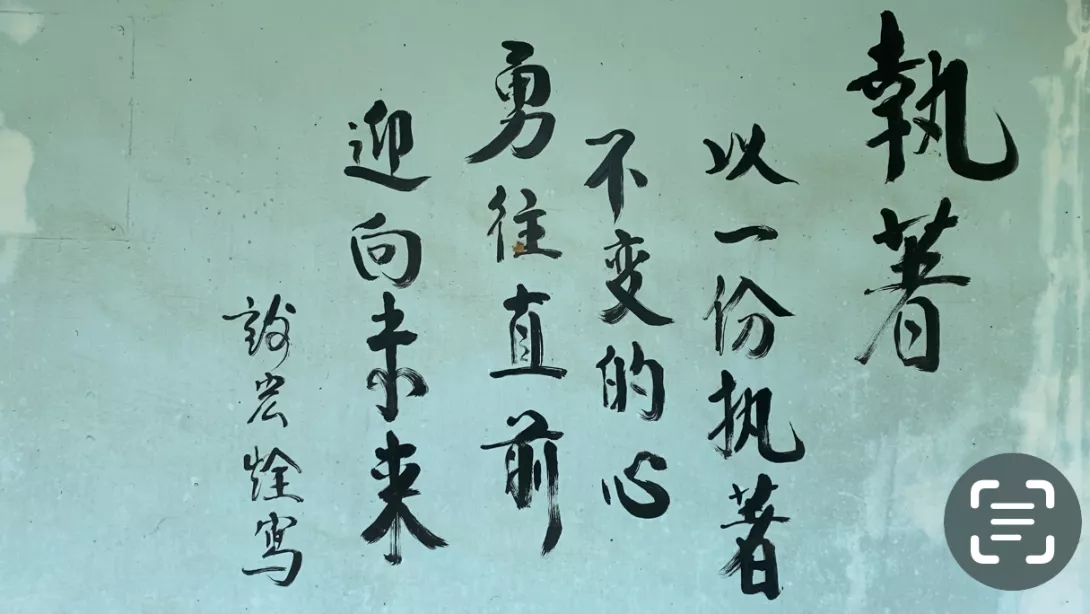 執著
以一份执著
不变的心
勇往直前
迎向未来
宏 寫